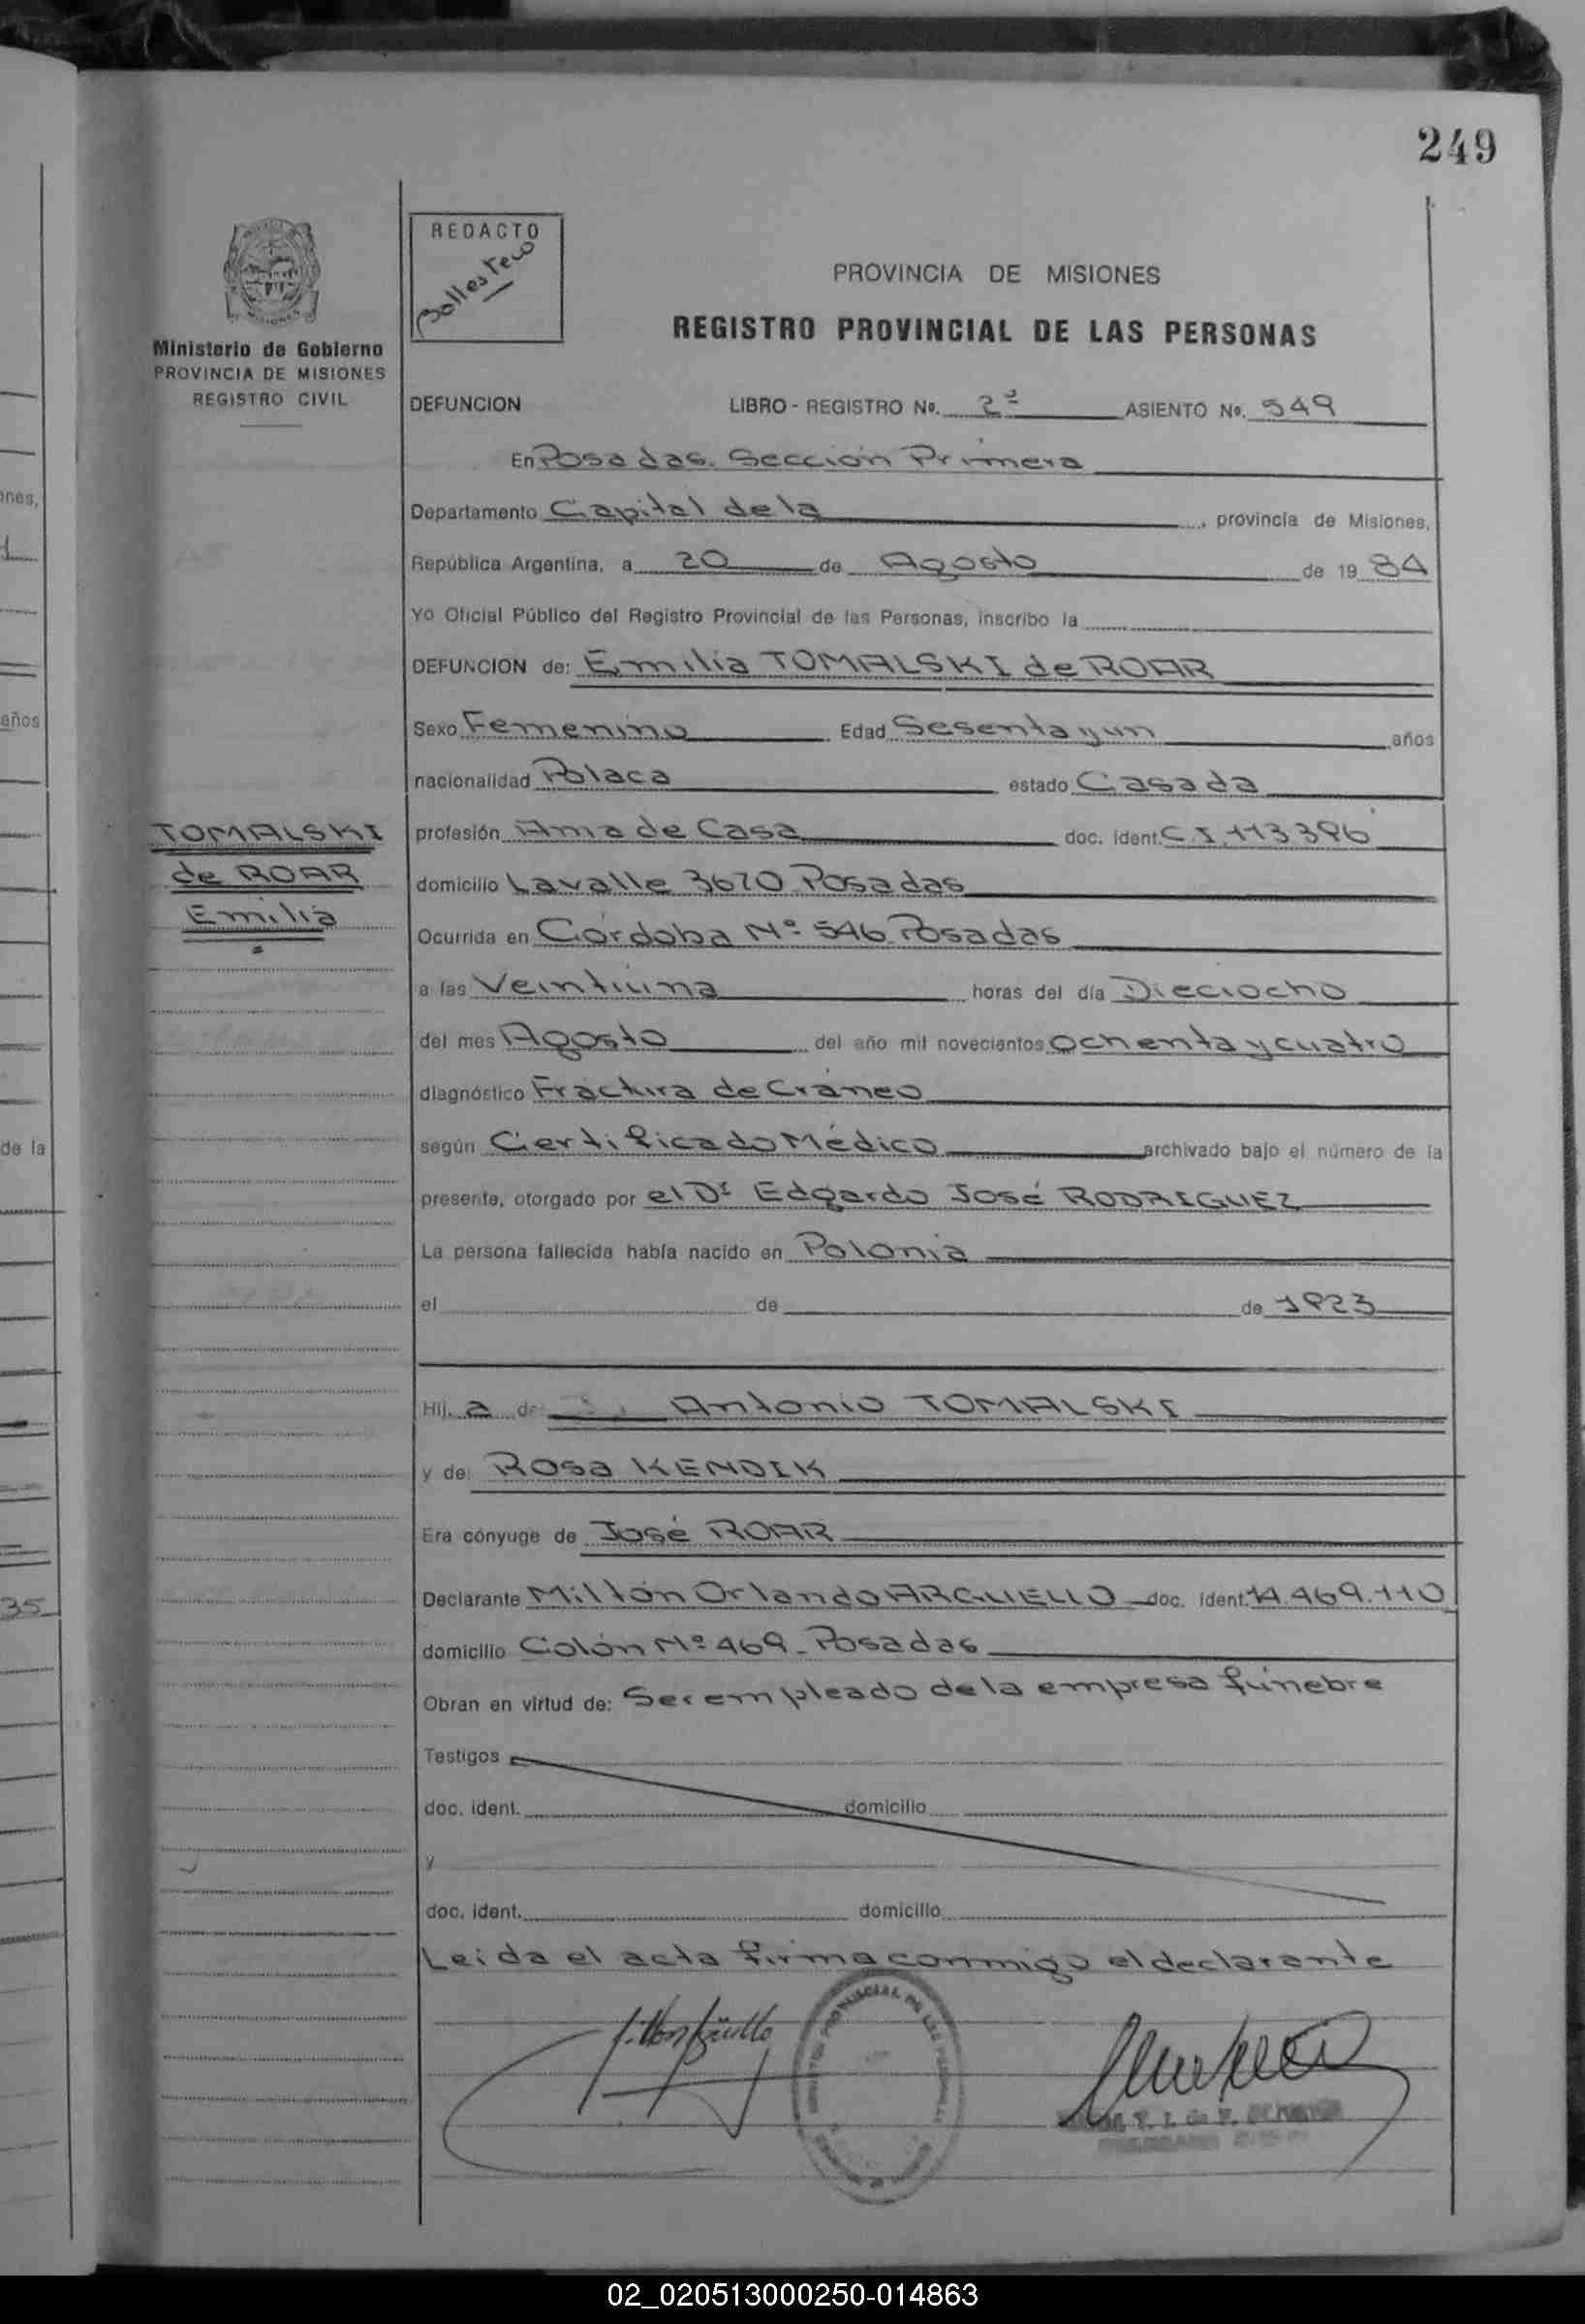 249
REDACTO
Ballestero
Ministerio de Gobierno
PROVINCIA DE MISIONES
REGISTRO CIVIL
PROVINCIA DE MISIONES
REGISTRO PROVINCIAL DE LAS PERSONAS
DEFUNCION LIBRO - REGISTRO Nº. 2º ASIENTO Nº. 549
En Posadas. Sección Primera
Departamento Capital de la, provincia de Misiones,
República Argentina, a 20 de Agosto de 1984
Yo Oficial Público del Registro Provincial de las Personas, inscribo la
DEFUNCION de: Emilia TOMALSKI de ROAR
Sexo Femenino Edad Sesenta y un años
nacionalidad Polaca estado Casada
TOMALSKI
de ROAR
Emilia
profesión Ama de Casa doc. ident. C.I. 113396
domicilio Lavalle 3670 Posadas
Ocurrida en Córdoba Nº 546 Posadas
a las Veintiuna horas del día Dieciocho
del mes Agosto del año mil novecientos ochenta y cuatro
diagnóstico Fractura de Cráneo
según Certificado Médico archivado bajo el número de la
presente, otorgado por el Dr Edgardo José RODRIGUEZ
La persona fallecida había nacido en Polonia
el de de 1923
Hij a de Antonio TOMALSKI
y de: Rosa KENDIK
Era cónyuge de José ROAR
Declarante Miltón Orlando ARGUELLO doc. ident. 14.469.110
domicilio Colón Nº 469 - Posadas
Obran en virtud de: Ser empleado de la empresa fúnebre
Testigos
doc. ident. domicilio
y
doc. ident. domicilio
Leida el acta firma conmigo el declarante
ones,
1
años
de la
35
02_020513000250-014863